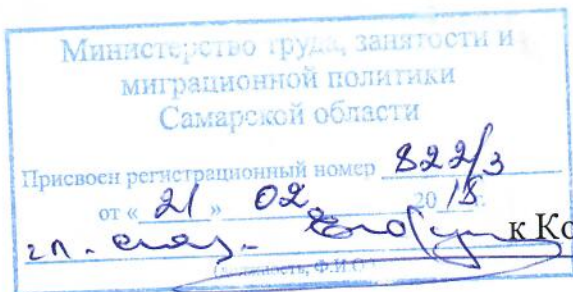 Министерство труда, занятости и
миграционной политики
Самарской области
Присвоен регистрационный номер 822/3
от « 21 » 02 2018 г.
гл. спец. к Ко
(должность, Ф.И.О.)